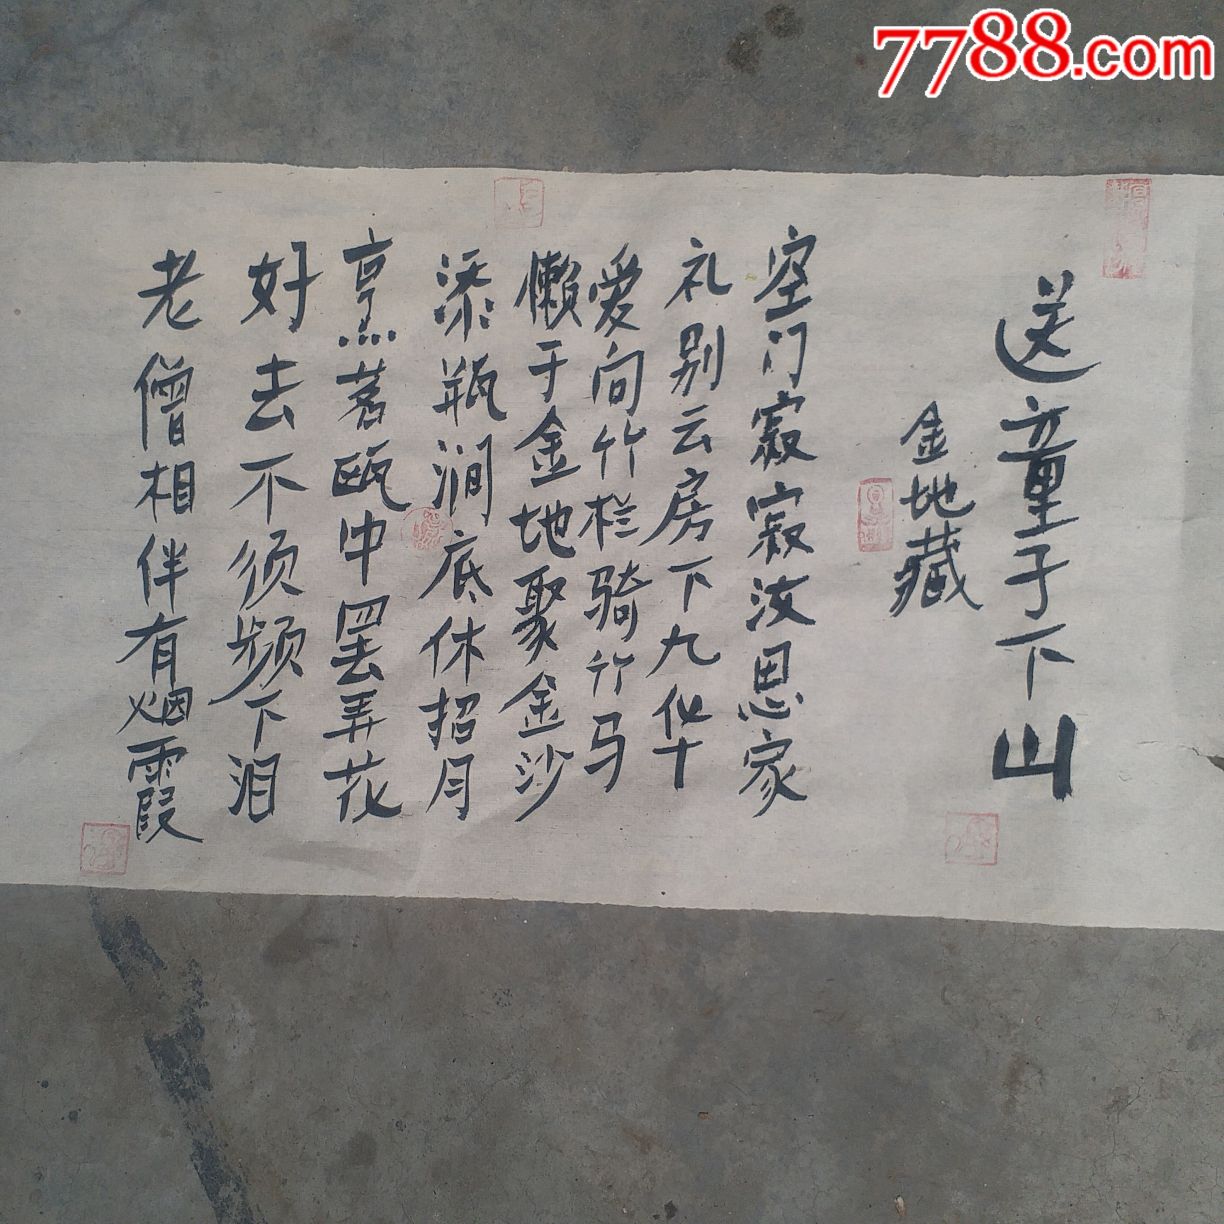 7788.com
送童子下山
金地藏
空门寂寂汝思家
礼别云房下九华
爱向竹栏骑竹马
懒于金地聚金沙
添瓶涧底休招月
烹茗瓯中罢弄花
好去不须频下泪
老僧相伴有烟霞